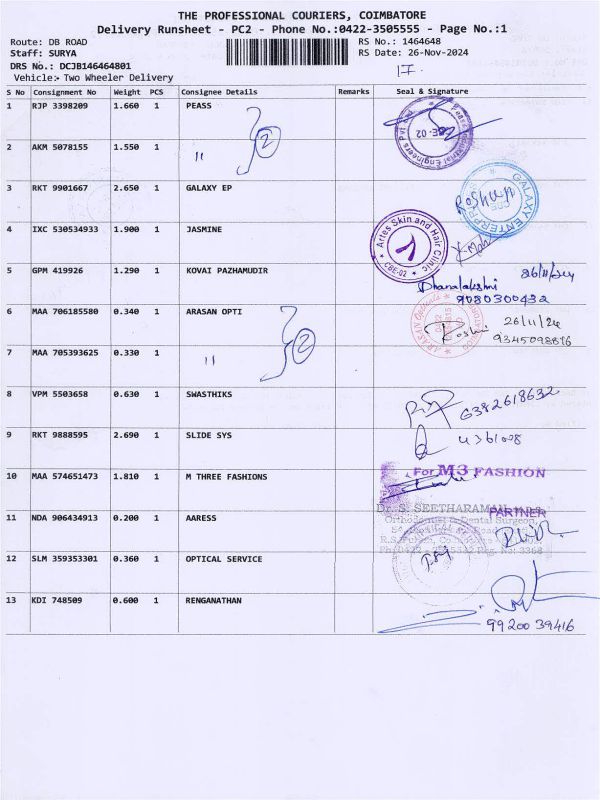 THE PROFESSIONAL COURIERS, COIMBATORE
Delivery Runsheet - PC2 - Phone No.:0422-3505555 - Page No.:1
Route: DB ROAD RS No.: 1464648
Staff: SURYA RS Date: 26-Nov-2024
DRS No.: DCJB146464801
Vehicle:- Two Wheeler Delivery
S No Consignment No Weight PCS Consignee Details Remarks Seal & Signature
1 RJP 3398209 1.660 1 PEASS
2 AKM 5078155 1.550 1 " 2
3 RKT 9901667 2.650 1 GALAXY EP
GALAXY ENTERPRISES
Roshan
4 IXC 530534933 1.900 1 JASMINE
Artes Skin and Hair Clinic
CBE-02
5 GPM 419926 1.290 1 KOVAI PAZHAMUDIR
26/11/24
Dhanalakshmi
9080300432
6 MAA 706185580 0.340 1 ARASAN OPTI
26/11/24
Roshni 9345098816
7 MAA 705393625 0.330 1 " 2
8 VPM 5503658 0.630 1 SWASTHIKS
6382618632
9 RKT 9888595 2.690 1 SLIDE SYS
10 MAA 574651473 1.810 1 M THREE FASHIONS
For M3 FASHION
PARTNER
Dr. S. SEETHARAMAN
Orthodontist & Dental Surgeon,
11 NDA 906434913 0.200 1 AARESS
12 SLM 359353301 0.360 1 OPTICAL SERVICE
13 KDI 748509 0.600 1 RENGANATHAN
9920039416